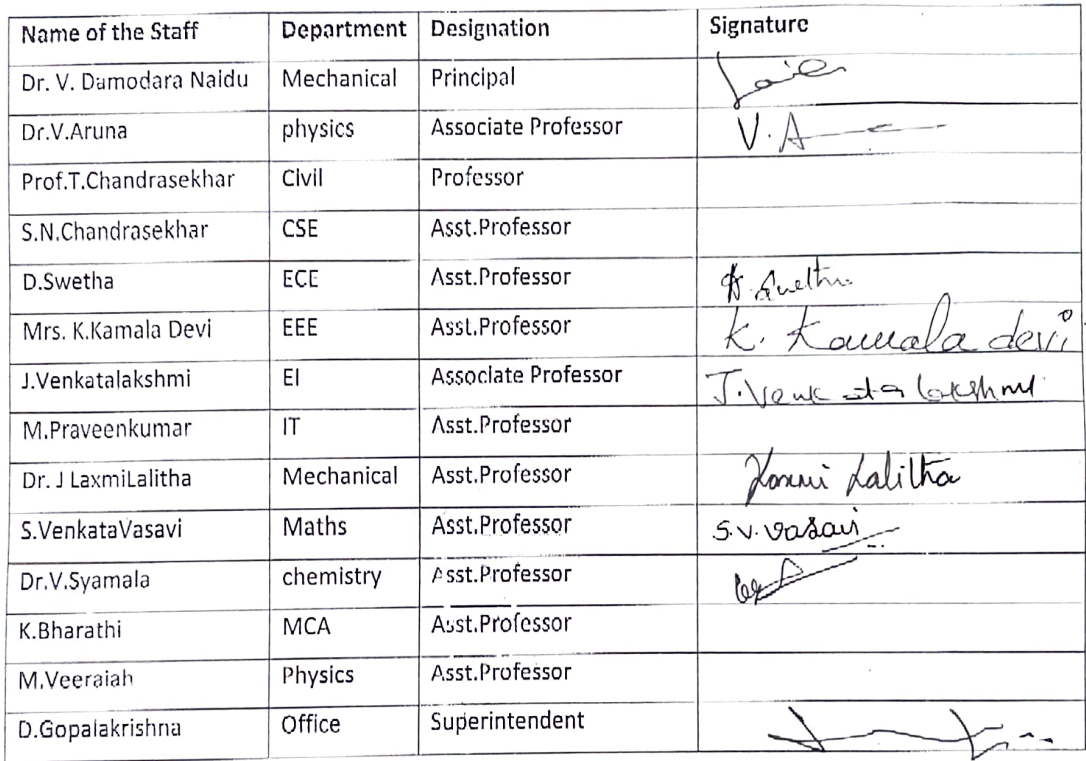 Name of the Staff Department Designation Signature
Dr. V. Damodara Naidu Mechanical Principal
Dr.V.Aruna physics Associate Professor V.A
Prof.T.Chandrasekhar Civil Professor
S.N.Chandrasekhar CSE Asst.Professor
D.Swetha ECE Asst.Professor D.Swetha
Mrs. K.Kamala Devi EEE Asst.Professor K. Kamala devi
J.Venkatalakshmi EI Associate Professor J.Venkatalakshmi
M.Praveenkumar IT Asst.Professor
Dr. J LaxmiLalitha Mechanical Asst.Professor Laxmi Lalitha
S.VenkataVasavi Maths Asst.Professor S.V.Vasavi
Dr.V.Syamala chemistry Asst.Professor
K.Bharathi MCA Asst.Professor
M.Veeraiah Physics Asst.Professor
D.Gopalakrishna Office Superintendent